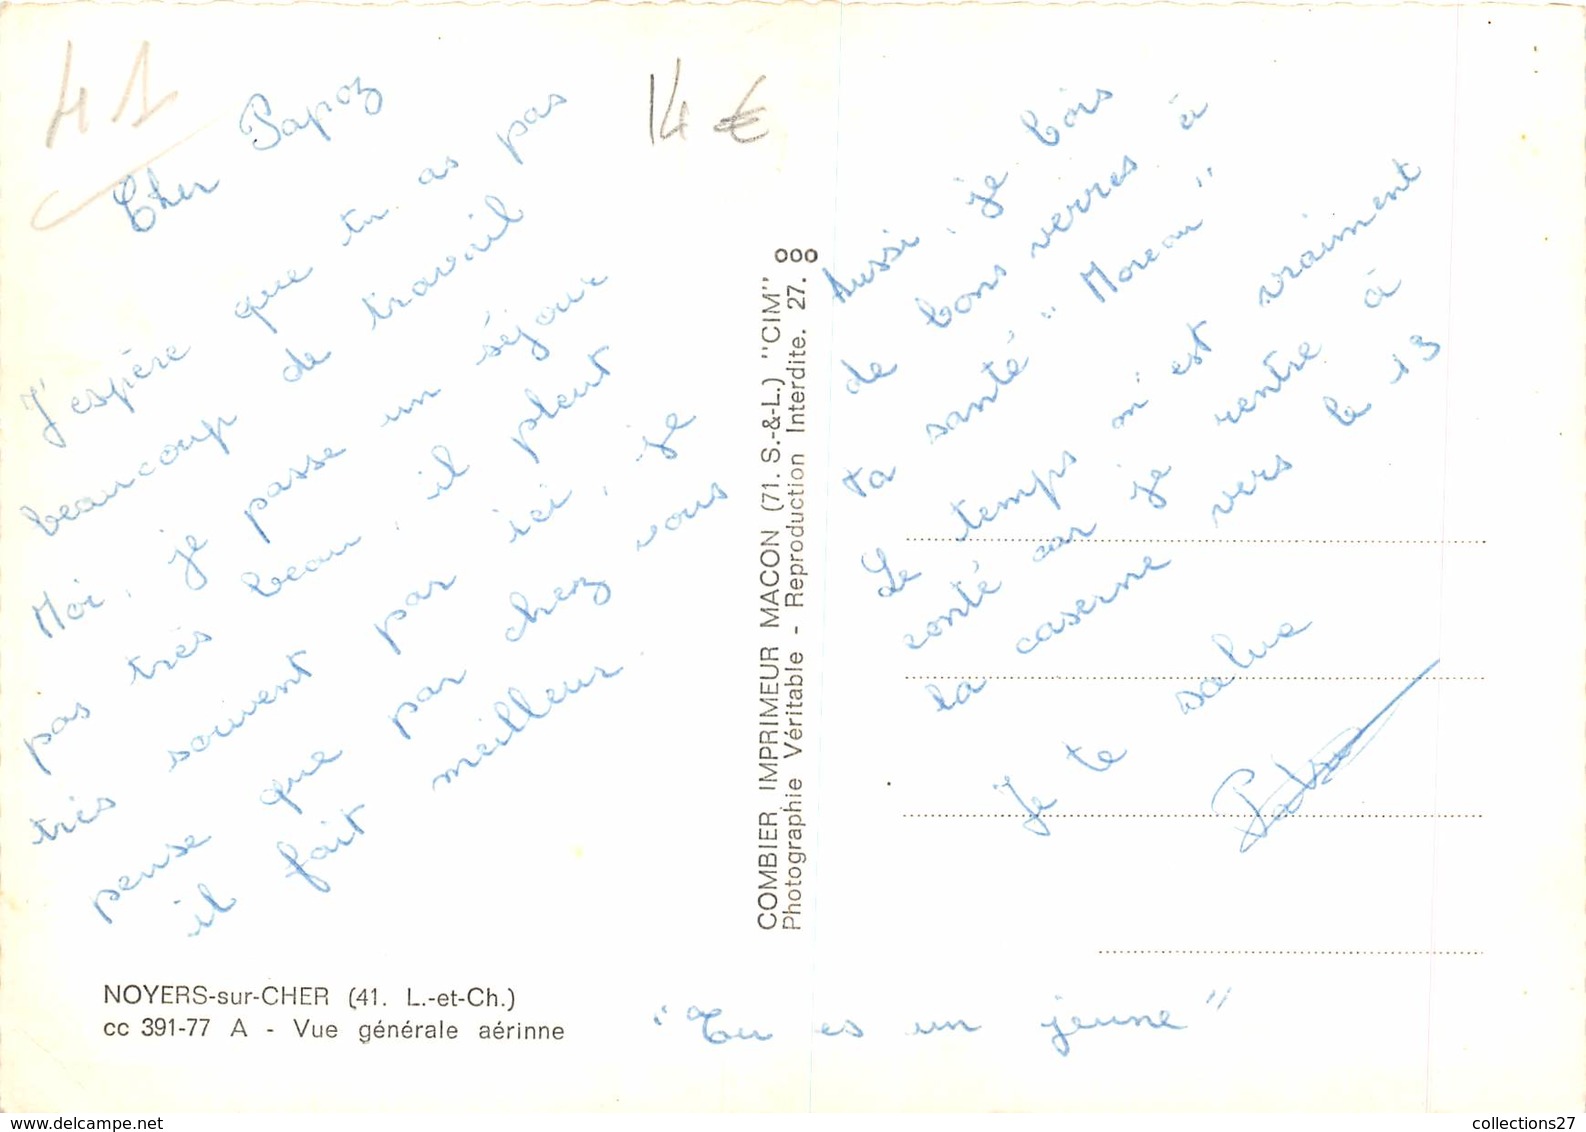 41
14 €
Cher Papoz
J'espère que tu as pas
beaucoup de travail
Moi, je passe un séjour
pas très beau, il pleut
très souvent par ici, je
pense que par chez vous
il fait meilleur.
NOYERS-sur-CHER (41. L.-et-Ch.)
cc 391-77 A - Vue générale aérinne
COMBIER IMPRIMEUR MACON (71. S.-&-L.) "CIM"
Photographie Véritable - Reproduction Interdite. 27.
Aussi, je bois
de bons verres à
ta santé "Moreau"
Le temps m'est vraiment
conté car je rentre à
la caserne vers le 13
Je te salue
"Tu es un jeune"
collections27